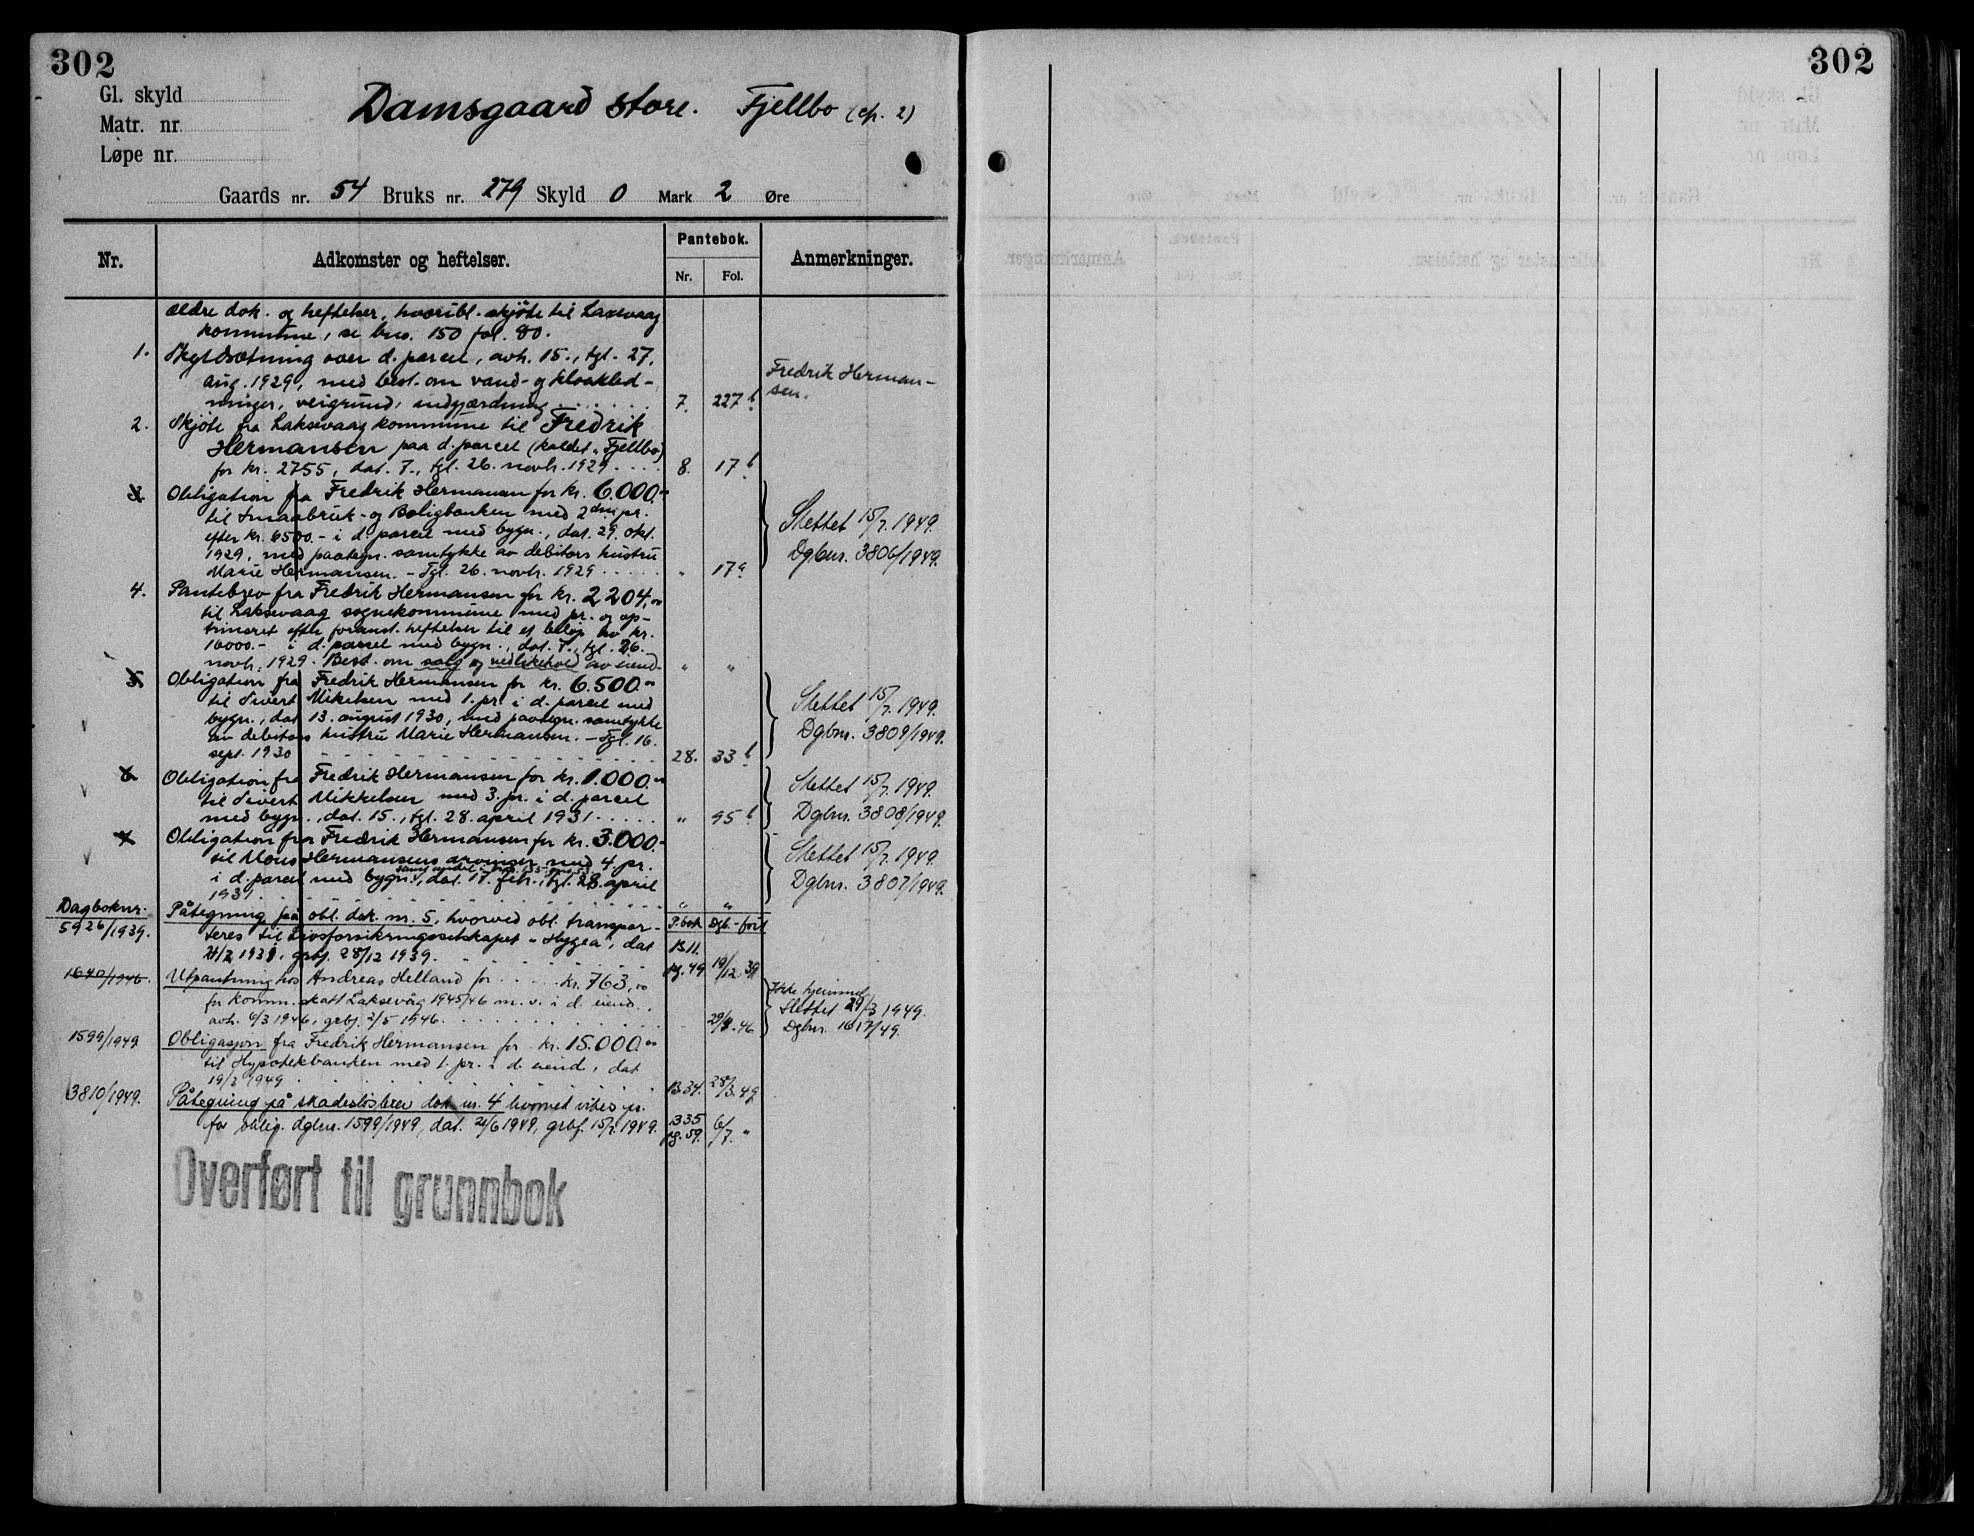 302
Gl. skyld
Matr. nr.
Løpe nr.
Damsgaard store. Fjellbo (cfr. 2)
Gaards nr. 54 Bruks nr. 279 Skyld 0 Mark 2 Øre
Nr. Adkomster og heftelser. Pantebok. Anmerkninger.
Nr. Fol.
ældre dok. og heftelser, hvoribl. skjöte til Laxevaag
kommune, se bno. 150 fol. 80.
1. Skyldsætning over d. parcel, avh. 15., tgl. 27.
aug. 1929, med best. om vand- og kloakled-
ninger, veigrund, indgjærdning 7. 227 b
Fredrik Herman-
sen.
2. Skjöte fra Laksevaag kommune til Fredrik
Hermansen paa d. parcel (kaldet "Fjellbo)
for kr. 2755, dat. 7., tgl. 26. novb. 1929 8. 17 b
3. Obligation fra Fredrik Hermansen for kr. 6.000.-
til Smaabruk- og Boligbanken med 2den pr.
efter kr. 6500.- i d. parcel med bygn., dat. 29. okt.
1929, med paategn. samtykke av debitors hustru
Marie Hermansen. - Tgl. 26. novb. 1929 " 17 a
Slettet 15/7. 1949.
Dgbnr. 3806/1949.
4. Pantebrev fra Fredrik Hermansen for kr. 2204,00
til Laksevaag sognekommune med pr. og op-
trinsret efter foranst. heftelser til et beløp av kr.
10000.- i d. parcel med bygn., dat. 7., tgl. 26.
novb. 1929. Best. om salg og vedlikehold av eiend. " "
5. Obligation fra Fredrik Hermansen for kr. 6.500.-
til Sivert Mikelsen med 1. pr. i d. parcel med
bygn., dat. 13. august 1930, med paategn. samtykke
av debitors hustru Marie Hermansen. - Tgl. 16.
sept. 1930 28. 33 b
Slettet 15/7. 1949.
Dgbnr. 3809/1949.
6. Obligation fra Fredrik Hermansen for kr. 1.000.-
til Sivert Mikkelsen med 3. pr. i d. parcel
med bygn., dat. 15., tgl. 28. april 1931 " 95 b
Slettet 15/7. 1949.
Dgbnr. 3808/1949.
7. Obligation fra Fredrik Hermansen for kr. 3.000.-
til Mons Hermansens arvinger med 4 pr.
i d. parcel med bygn., dat. 17. febr., tgl. 28. april
1931 " "
Slettet 15/7. 1949.
Dgbnr. 3807/1949.
Dagboknr. P.bok Dgb.-ført
5926/1939. Påtegning på obl. dok. nr. 5, hvorved obl. transpor-
teres til Livsforsikringsselskapet "Hygea", dat
1939, grbf. 28/12 1939. B.11. pg. 49 19/12 39
1640/1946. Utpantning hos Andreas Helland for kr. 763,00
for komm. skatt Laksevåg 1945/46 m. v. i d. eiend.,
avh. 6/3 1946, grbf. 2/5 1946. 29/4.46
Ikke hjemmel
Slettet 29/3 1949.
Dgbnr. 1617/49.
1599/1949 Obligasjon fra Fredrik Hermansen for kr. 15.000.00
til Hypotekbanken med 1. pr. i d. eiend., dat
19/3 1949 B.34. 28/3.49
3810/1949. Påtegning på skadesløsbrev dok nr. 4 hvorved vikes pr.
for oblig. dgbnr. 1599/1949, dat. 21/6 1949, grbf. 15/7. 1949. B35 pg. 59. 6/7. "
Overført til grunnbok
302